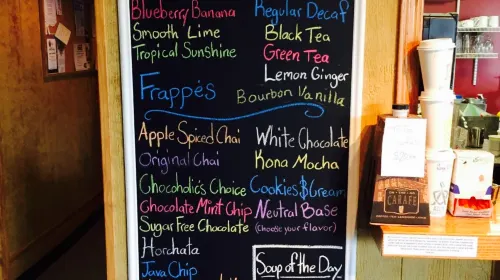 Blueberry Banana
Smooth Lime
Tropical Sunshine
Regular Decaf
Black Tea
Green Tea
Lemon Ginger
Bourbon Vanilla
Frappés
Apple Spiced Chai
Original Chai
Chocoholics Choice
Chocolate Mint Chip
Sugar Free Chocolate
Horchata
Java Chip
White Chocolate
Kona Mocha
Cookies & Cream
Neutral Base
(choose your flavor)
Soup of the Day
CARAFE